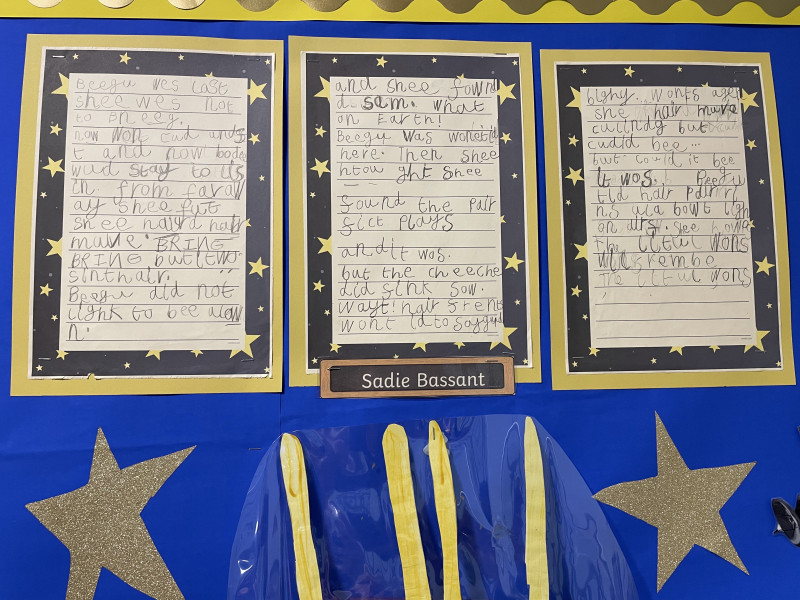 Beegu wes Last
shee wes not
to Bneeg.
now won cud ands
t and now bodee
wud stay to lis
in. from faraw
ay shee fut
shee naird hair
mume. BRING
BRING butitwos
sinthair.
Beegu did not
light to bee alow
n.
and shee fownd
d som. what
on Earth!
Beegu was wonetid
here. Then shee
htow ght shee
found the pair
fict plays
and it wos.
but the cheeche
did fink sow.
wayt! hair frens
wont id to Saygud
bighy. wons agen
she hair mume
cullndy but
cudd bee...
but could it bee
It wos. Beegu
tld hair pairri
ns ala bowt ligh
on arts. See howp
The litul wons
wil rembe
The litul wons
Sadie Bassant